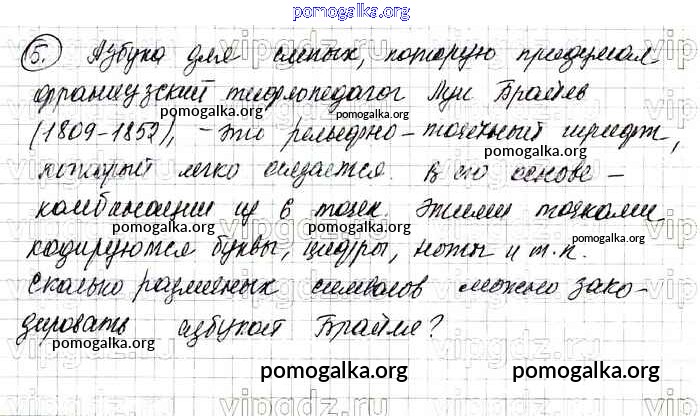 pomogalka.org
5. Азбука для слепых, которую придумал
французский тифлопедагог Луи Брайль
pomogalka.org
pomogalka.org
(1809-1852), - это рельефно-точечный шрифт,
pomogalka.org
который легко осязается. В его основе -
pomogalka.org
комбинации из 6 точек. Этими точками
pomogalka.org
кодируются буквы, цифры, ноты и т.п.
pomogalka.org
Сколько различных символов можно зако-
pomogalka.org
дировать азбукой Брайля?
pomogalka.org
pomogalka.org